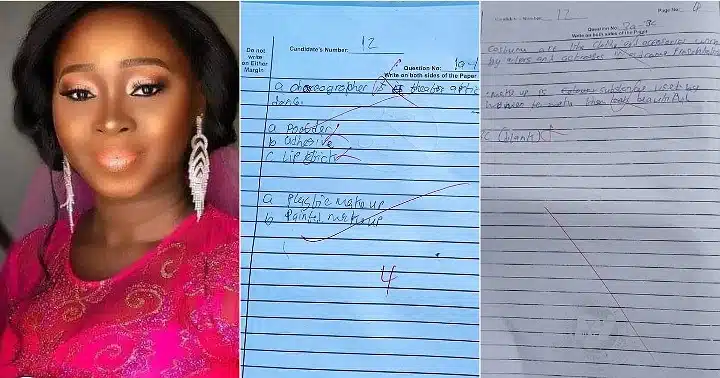 Do not
write
on Either
Margin
Candidate's Number: 12
Question No:
Write on both sides of the Paper
a choreographer is theater artic
a powder
b adhesive
c lip stick
a plastic make up
b Painted make up
4
Candidate's Number: 12
Page No:
Question No: 3a-3c
Write on both sides of the Paper
Costume are the cloths and accessories worn
by actors and actresses
make up is substance used by
to make them look beautiful
C (blank)